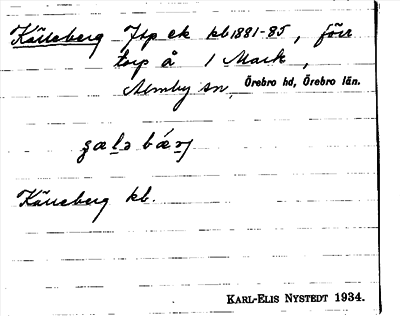 Källeberg Jtp ek kb 1881-85, förr
torp å 1 Mark,
Almby sn, Örebro hd, Örebro län.
Källeberg kb.
KARL-ELIS NYSTEDT 1934.